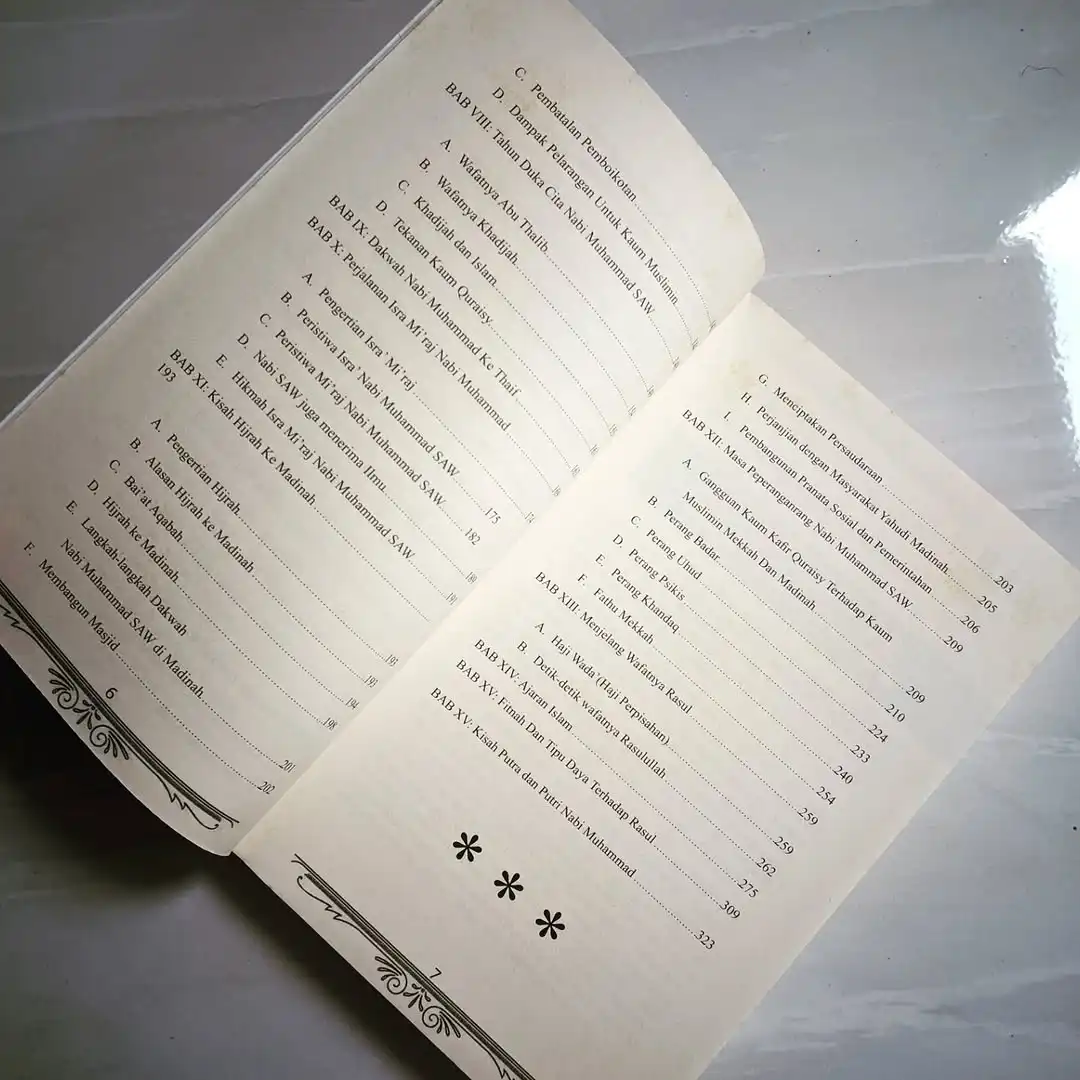 C. Pembatalan Pemboikotan
D. Dampak Pelarangan Untuk Kaum Muslimin
BAB VIII: Tahun Duka Cita Nabi Muhammad SAW
A. Wafatnya Abu Thalib
B. Wafatnya Khadijah
C. Khadijah dan Islam
D. Tekanan Kaum Quraisy
BAB IX: Dakwah Nabi Muhammad Ke Thaif
BAB X: Perjalanan Isra Mi'raj Nabi Muhammad
A. Pengertian Isra' Mi'raj
B. Peristiwa Isra' Nabi Muhammad SAW 175
C. Peristiwa Mi'raj Nabi Muhammad SAW 182
D. Nabi SAW juga menerima Ilmu
E. Hikmah Isra Mi'raj Nabi Muhammad SAW
193
BAB XI: Kisah Hijrah Ke Madinah
A. Pengertian Hijrah
B. Alasan Hijrah ke Madinah
C. Bai'at Aqabah 194
D. Hijrah ke Madinah 198
E. Langkah-langkah Dakwah
Nabi Muhammad SAW di Madinah 201
F. Membangun Masjid 202
6
G. Menciptakan Persaudaraan 203
H. Perjanjian dengan Masyarakat Yahudi Madinah 205
I. Pembangunan Pranata Sosial dan Pemerintahan 206
BAB XII: Masa Peperanganrang Nabi Muhammad SAW 209
A. Gangguan Kaum Kafir Quraisy Terhadap Kaum
Muslimin Mekkah Dan Madinah 209
B. Perang Badar 210
C. Perang Uhud 224
D. Perang Psikis 233
E. Perang Khandaq 240
F. Fathu Mekkah 254
BAB XIII: Menjelang Wafatnya Rasul 259
A. Haji Wada'(Haji Perpisahan) 259
B. Detik-detik wafatnya Rasulullah 262
BAB XIV: Ajaran Islam 275
BAB XV: Fitnah Dan Tipu Daya Terhadap Rasul 309
BAB XV: Kisah Putra dan Putri Nabi Muhammad 323
7